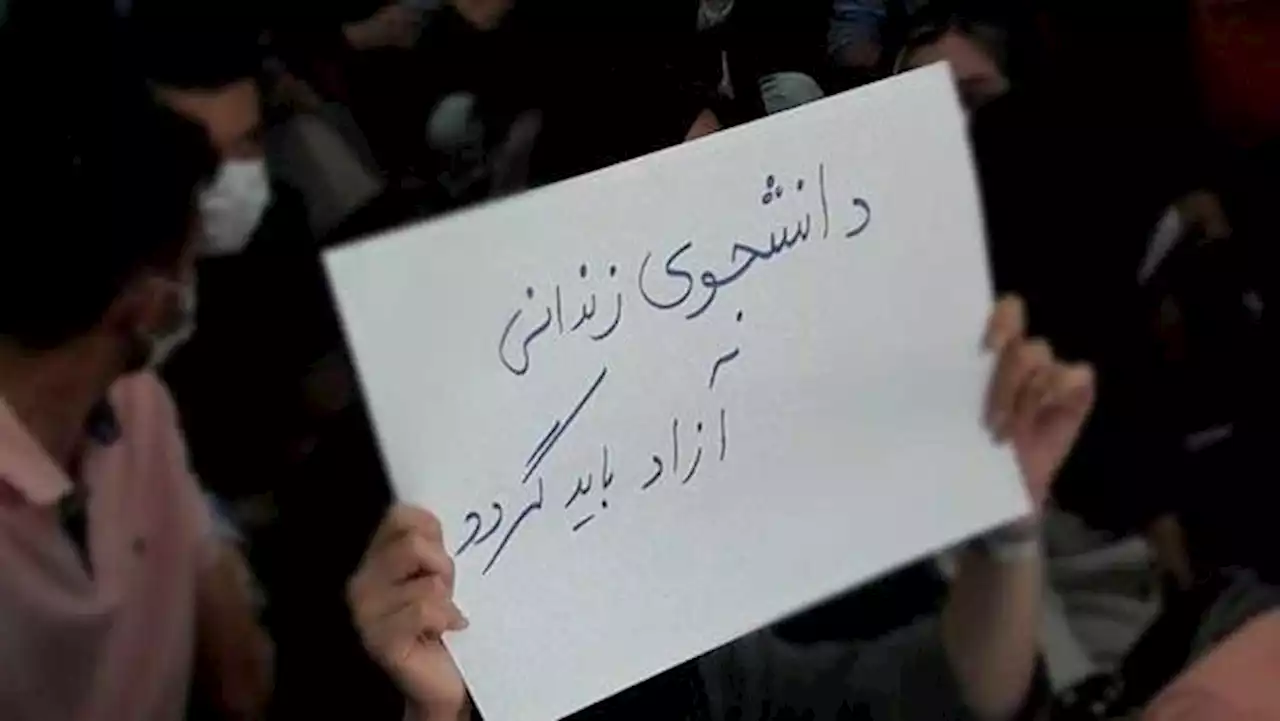 دانشجوی زندانی
آزاد باید گردد